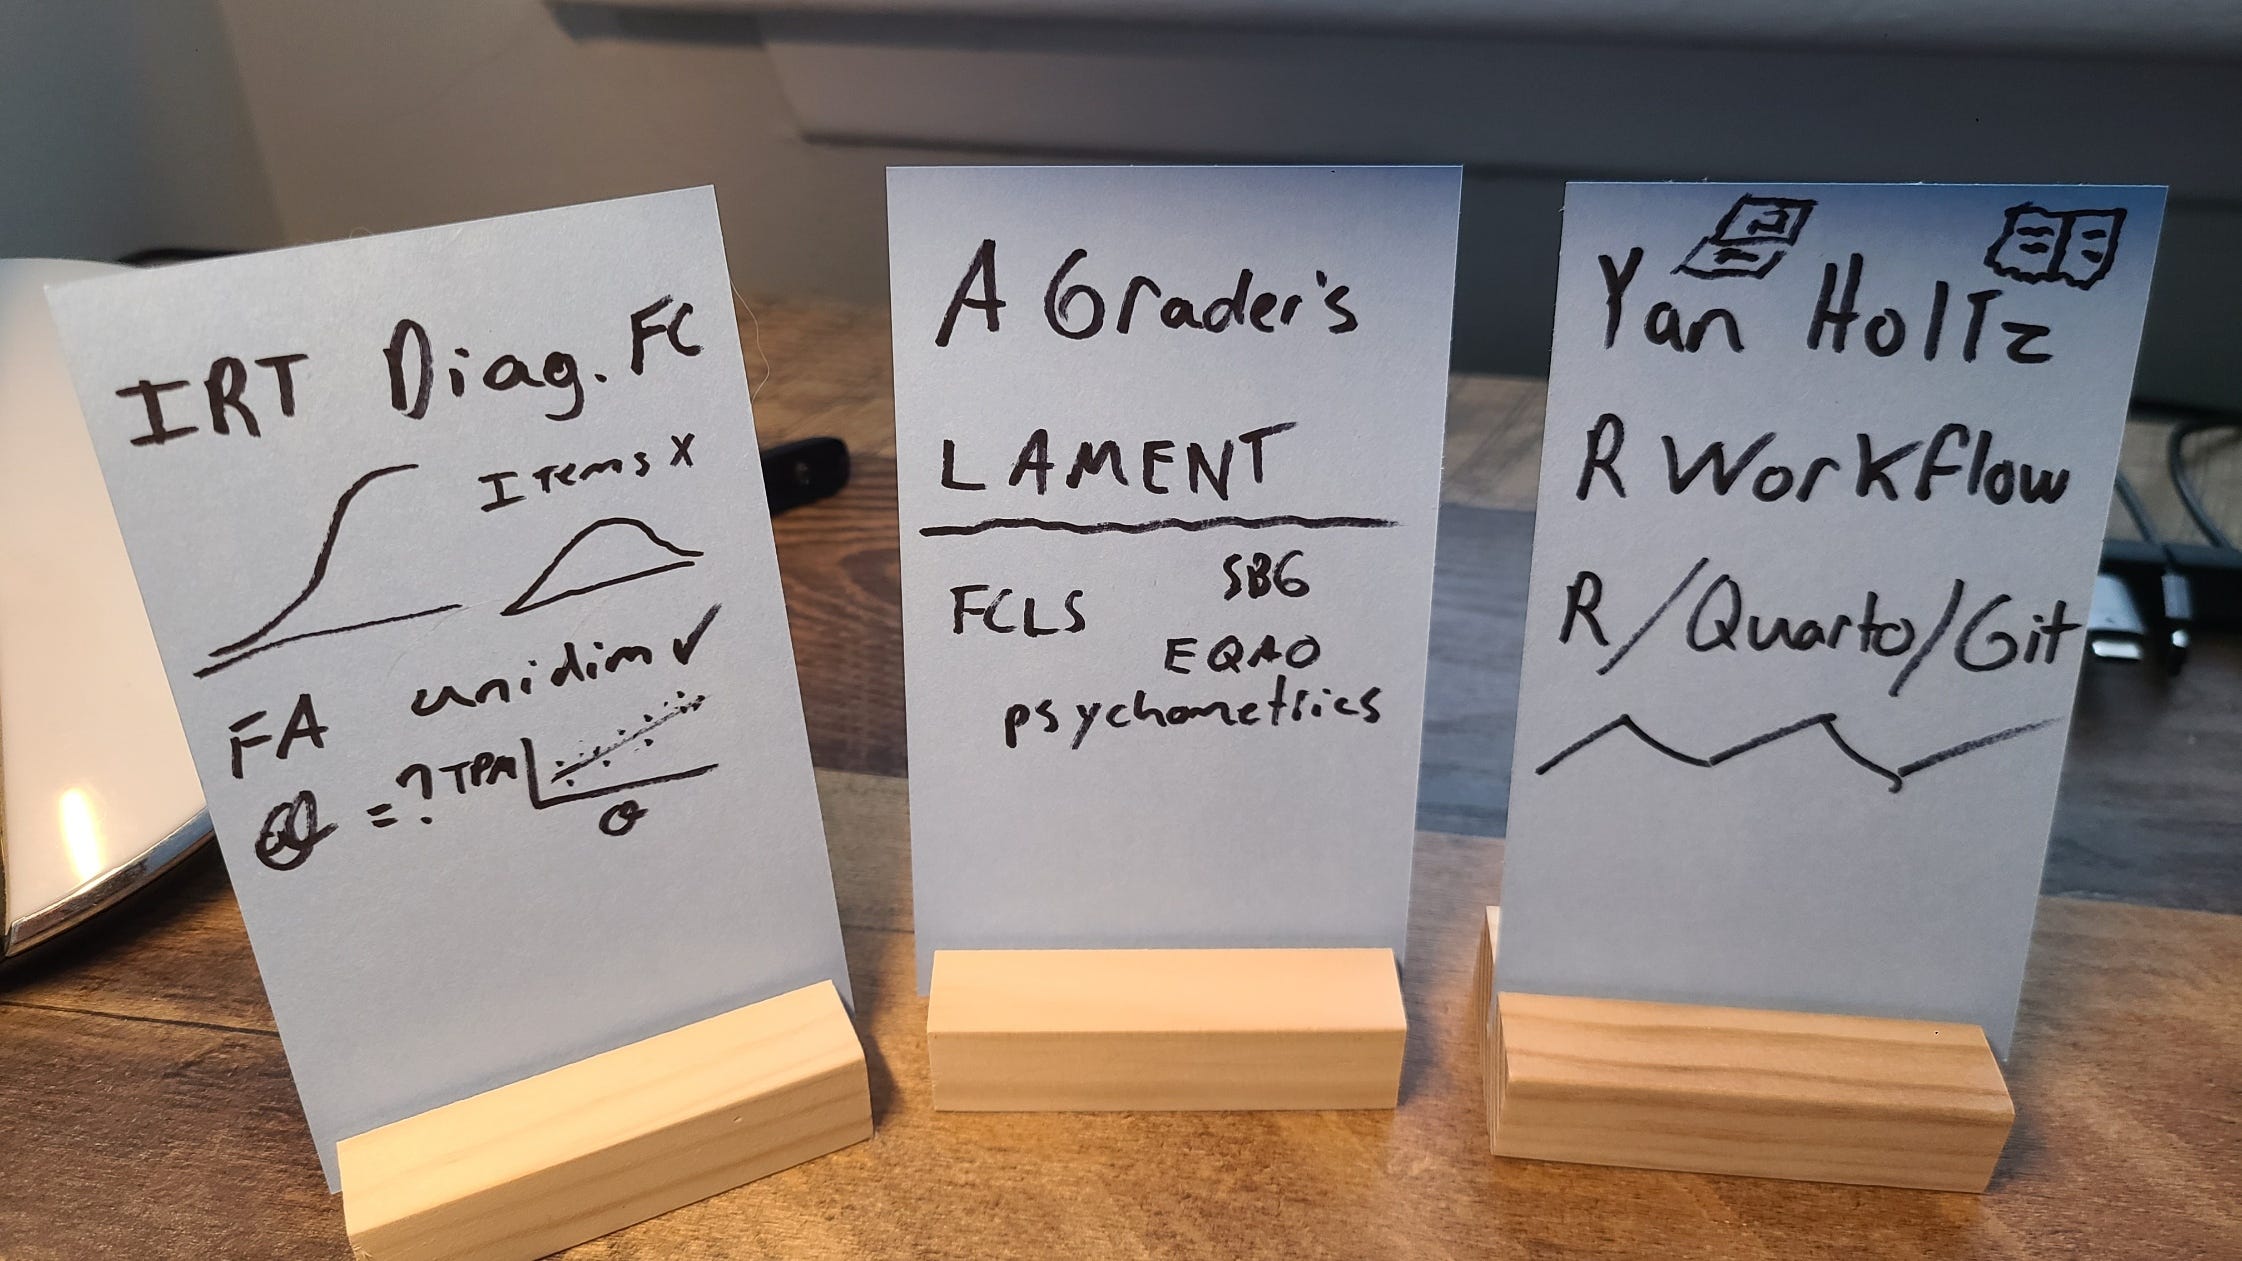 IRT Diag. FC
Items X
FA unidim ✓
= ? TPM
θ
A Grader's
LAMENT
FCLS
SBG
EQAO
psychometrics
Yan Holtz
R Workflow
R/Quarto/Git